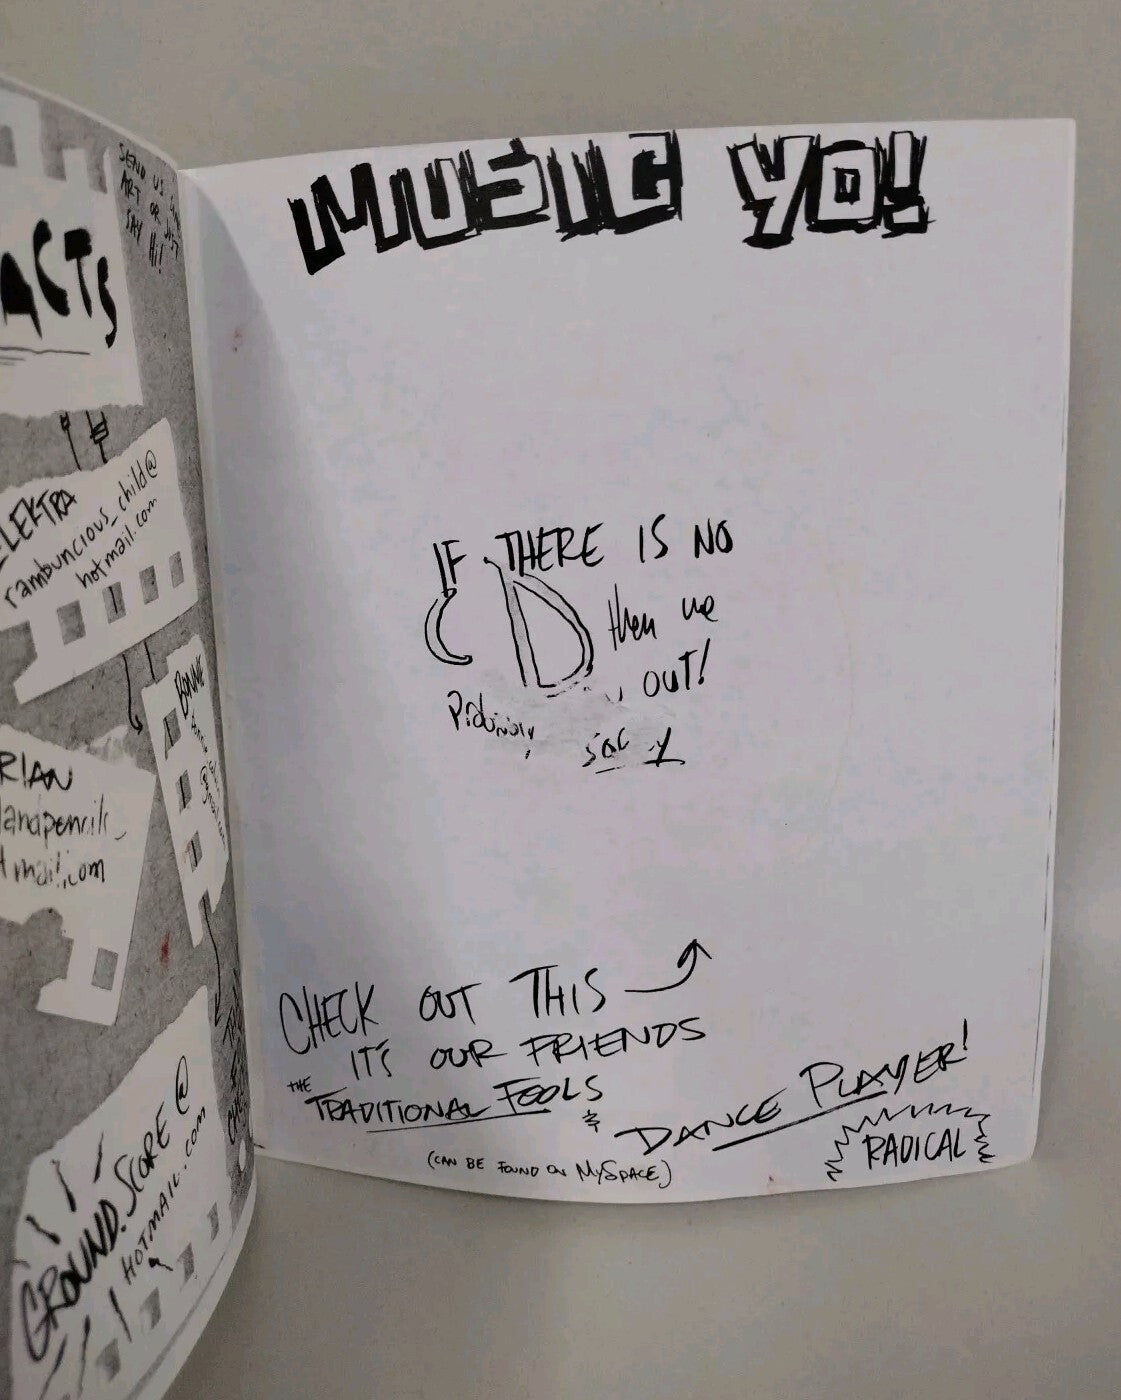 SEND US SOME
ART OR JUST
SAY HI!
ACTS
ELEKTRA
rambuncious_child@
hotmail.com
BONNIE
RIAN
landpencils_
tmail.com
GROUND.SCORE@
HOTMAIL.com
MUSIC YO!
IF THERE IS NO
CD then we
OUT!
Probably
CHECK OUT THIS
IT'S OUR FRIENDS
THE TRADITIONAL FOOLS
& DANCE PLAYER!
(CAN BE FOUND ON MYSPACE)
RADICAL